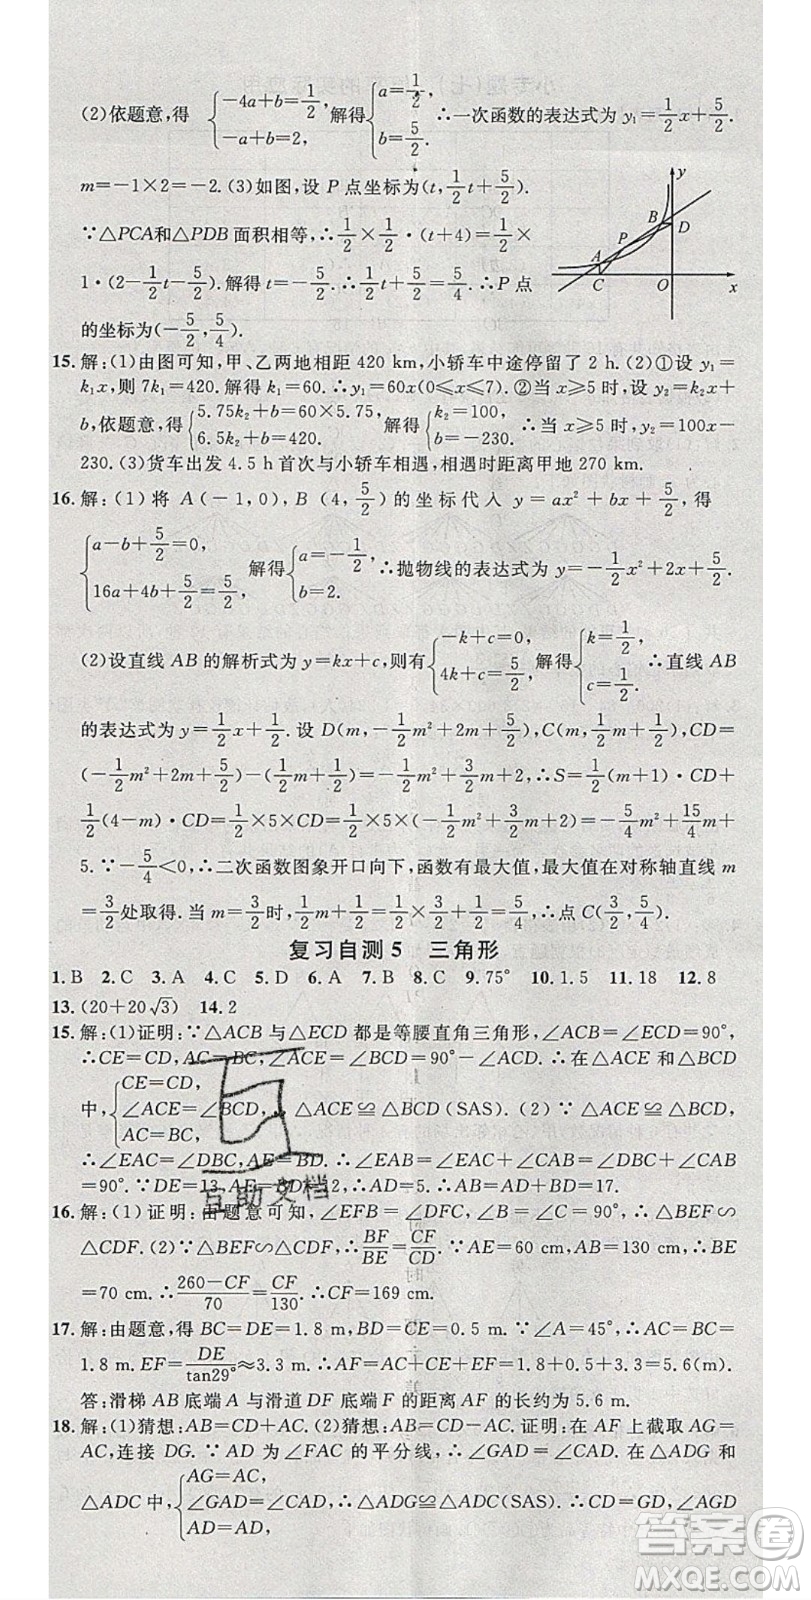 (2)依题意,得 {-4a+b=1/2, -a+b=2, 解得{a=1/2, b=5/2. ∴一次函数的表达式为 y₁=1/2x+5/2.
m=-1×2=-2. (3)如图,设 P 点坐标为(t, 1/2t+5/2).
∵△PCA和△PDB 面积相等,∴1/2×1/2·(t+4)=1/2×
1·(2-1/2t-5/2). 解得 t=-5/2. ∴1/2t+5/2=5/4. ∴P 点
的坐标为(-5/2, 5/4).
y
B
D
P
A
C
O
x
15. 解:(1)由图可知,甲、乙两地相距 420 km,小轿车中途停留了 2 h. (2)①设 y₁=
k₁x,则 7k₁=420. 解得 k₁=60. ∴y₁=60x(0≤x≤7). ②当 x≥5 时,设 y₂=k₂x+
b,依题意,得{5.75k₂+b=60×5.75, 6.5k₂+b=420. 解得{k₂=100, b=-230. ∴当 x≥5 时,y₂=100x-
230. (3)货车出发 4.5 h 首次与小轿车相遇,相遇时距离甲地 270 km.
16. 解:(1)将 A(-1,0),B(4, 5/2)的坐标代入 y=ax²+bx+5/2,得
{a-b+5/2=0, 16a+4b+5/2=5/2, 解得{a=-1/2, b=2. ∴抛物线的表达式为 y=-1/2x²+2x+5/2.
(2)设直线 AB 的解析式为 y=kx+c,则有{-k+c=0, 4k+c=5/2, 解得{k=1/2, c=1/2. ∴直线 AB
的表达式为 y=1/2x+1/2. 设 D(m,-1/2m²+2m+5/2),C(m, 1/2m+1/2),CD=
(-1/2m²+2m+5/2)-(1/2m+1/2)=-1/2m²+3/2m+2,∴S=1/2(m+1)·CD+
1/2(4-m)·CD=1/2×5×CD=1/2×5×(-1/2m²+3/2m+2)=-5/4m²+15/4m+
5. ∵-5/4<0,∴二次函数图象开口向下,函数有最大值,最大值在对称轴直线 m
=3/2处取得. 当 m=3/2时,1/2m+1/2=1/2×3/2+1/2=5/4,∴点 C(3/2, 5/4).
复习自测 5 三角形
1. B 2. C 3. A 4. C 5. D 6. A 7. B 8. C 9. 75° 10. 1.5 11. 18 12. 8
13. (20+20√3) 14. 2
15. 解:(1)证明:∵△ACB 与△ECD 都是等腰直角三角形,∠ACB=∠ECD=90°,
∴CE=CD,AC=BC,∠ACE=∠BCD=90°-∠ACD. ∴在△ACE 和△BCD
中,{CE=CD, ∠ACE=∠BCD, AC=BC, ∴△ACE≌△BCD(SAS). (2)∵△ACE≌△BCD,
∴∠EAC=∠DBC,AE=BD. ∴∠EAB=∠EAC+∠CAB=∠DBC+∠CAB
=90°. ∵DE=13, 12,∴AD=5. ∴AB=AD+BD=17.
16. 解:(1)证明:由题意可知,∠EFB=∠DFC,∠B=∠C=90°. ∴△BEF∽
△CDF. (2)∵△BEF∽△CDF,∴BF/BE=CF/CD. ∵AE=60 cm,AB=130 cm,∴BE
=70 cm. ∴260-CF/70=CF/130. ∴CF=169 cm.
17. 解:由题意,得 BC=DE=1.8 m,BD=CE=0.5 m. ∵∠A=45°,∴AC=BC=
1.8 m. EF=DE/tan29°≈3.3 m. ∴AF=AC+CE+EF=1.8+0.5+3.3=5.6(m).
答:滑梯 AB 底端 A 与滑道 DF 底端 F 的距离 AF 的长约为 5.6 m.
18. 解:(1)猜想:AB=CD+AC. (2)猜想:AB=CD-AC. 证明:在 AF 上截取 AG=
AC,连接 DG. ∵AD 为∠FAC 的平分线,∴∠GAD=∠CAD. 在△ADG 和
△ADC 中,{AG=AC, ∠GAD=∠CAD, AD=AD, ∴△ADG≌△ADC(SAS). ∴CD=GD,∠AGD
互助文档
答案圈
MXQE.COM